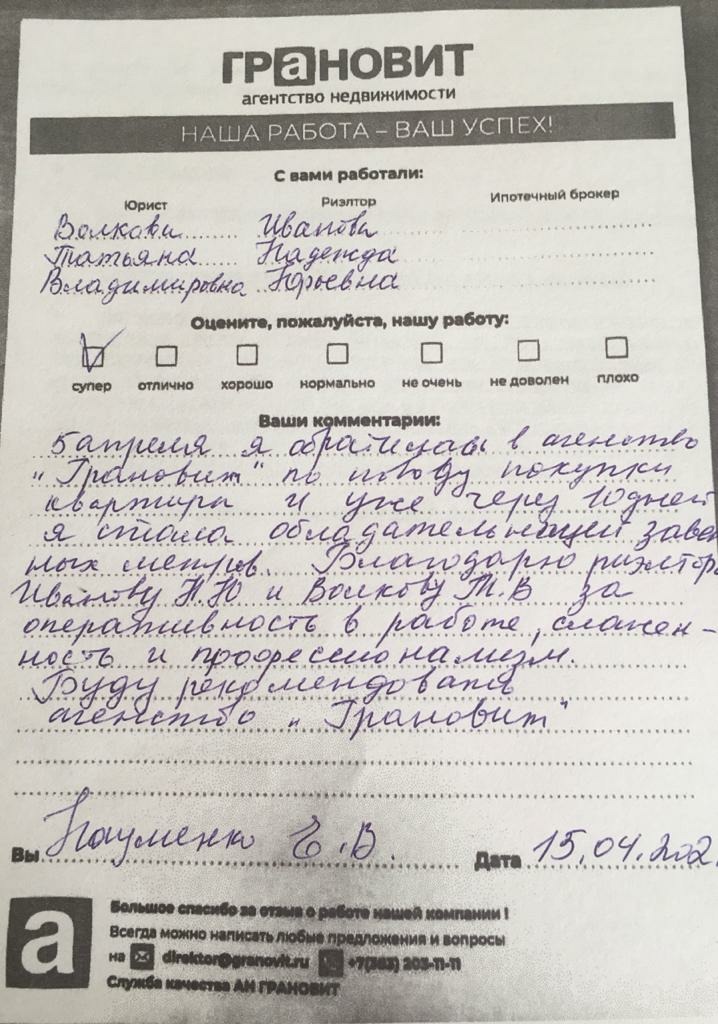 ГРаНОВИТ
агентство недвижимости
НАША РАБОТА – ВАШ УСПЕХ!
С вами работали:
Юрист Риэлтор Ипотечный брокер
Волкова Иванова
Татьяна Надежда
Владимировна Юрьевна
Оцените, пожалуйста, нашу работу:
супер отлично хорошо нормально не очень не доволен плохо
Ваши комментарии:
5 апреля я обратилась в агенство
"Грановит" по поводу покупки
квартиры и уже через 10 дней
я стала обладательницей завет
ных метров. Благодарю риэлтора
Иванову Н.Ю и Волкову Т.В за
оперативность в работе, слажен-
ность и профессионализм.
Буду рекомендовать
агенство "Грановит"
Вы Науменко Е.В. Дата 15.04.202
а
Большое спасибо за отзыв о работе нашей компании !
Всегда можно написать любые предложения и вопросы
на direktor@granovit.ru +7(383) 203-11-11
Служба качества АН ГРАНОВИТ